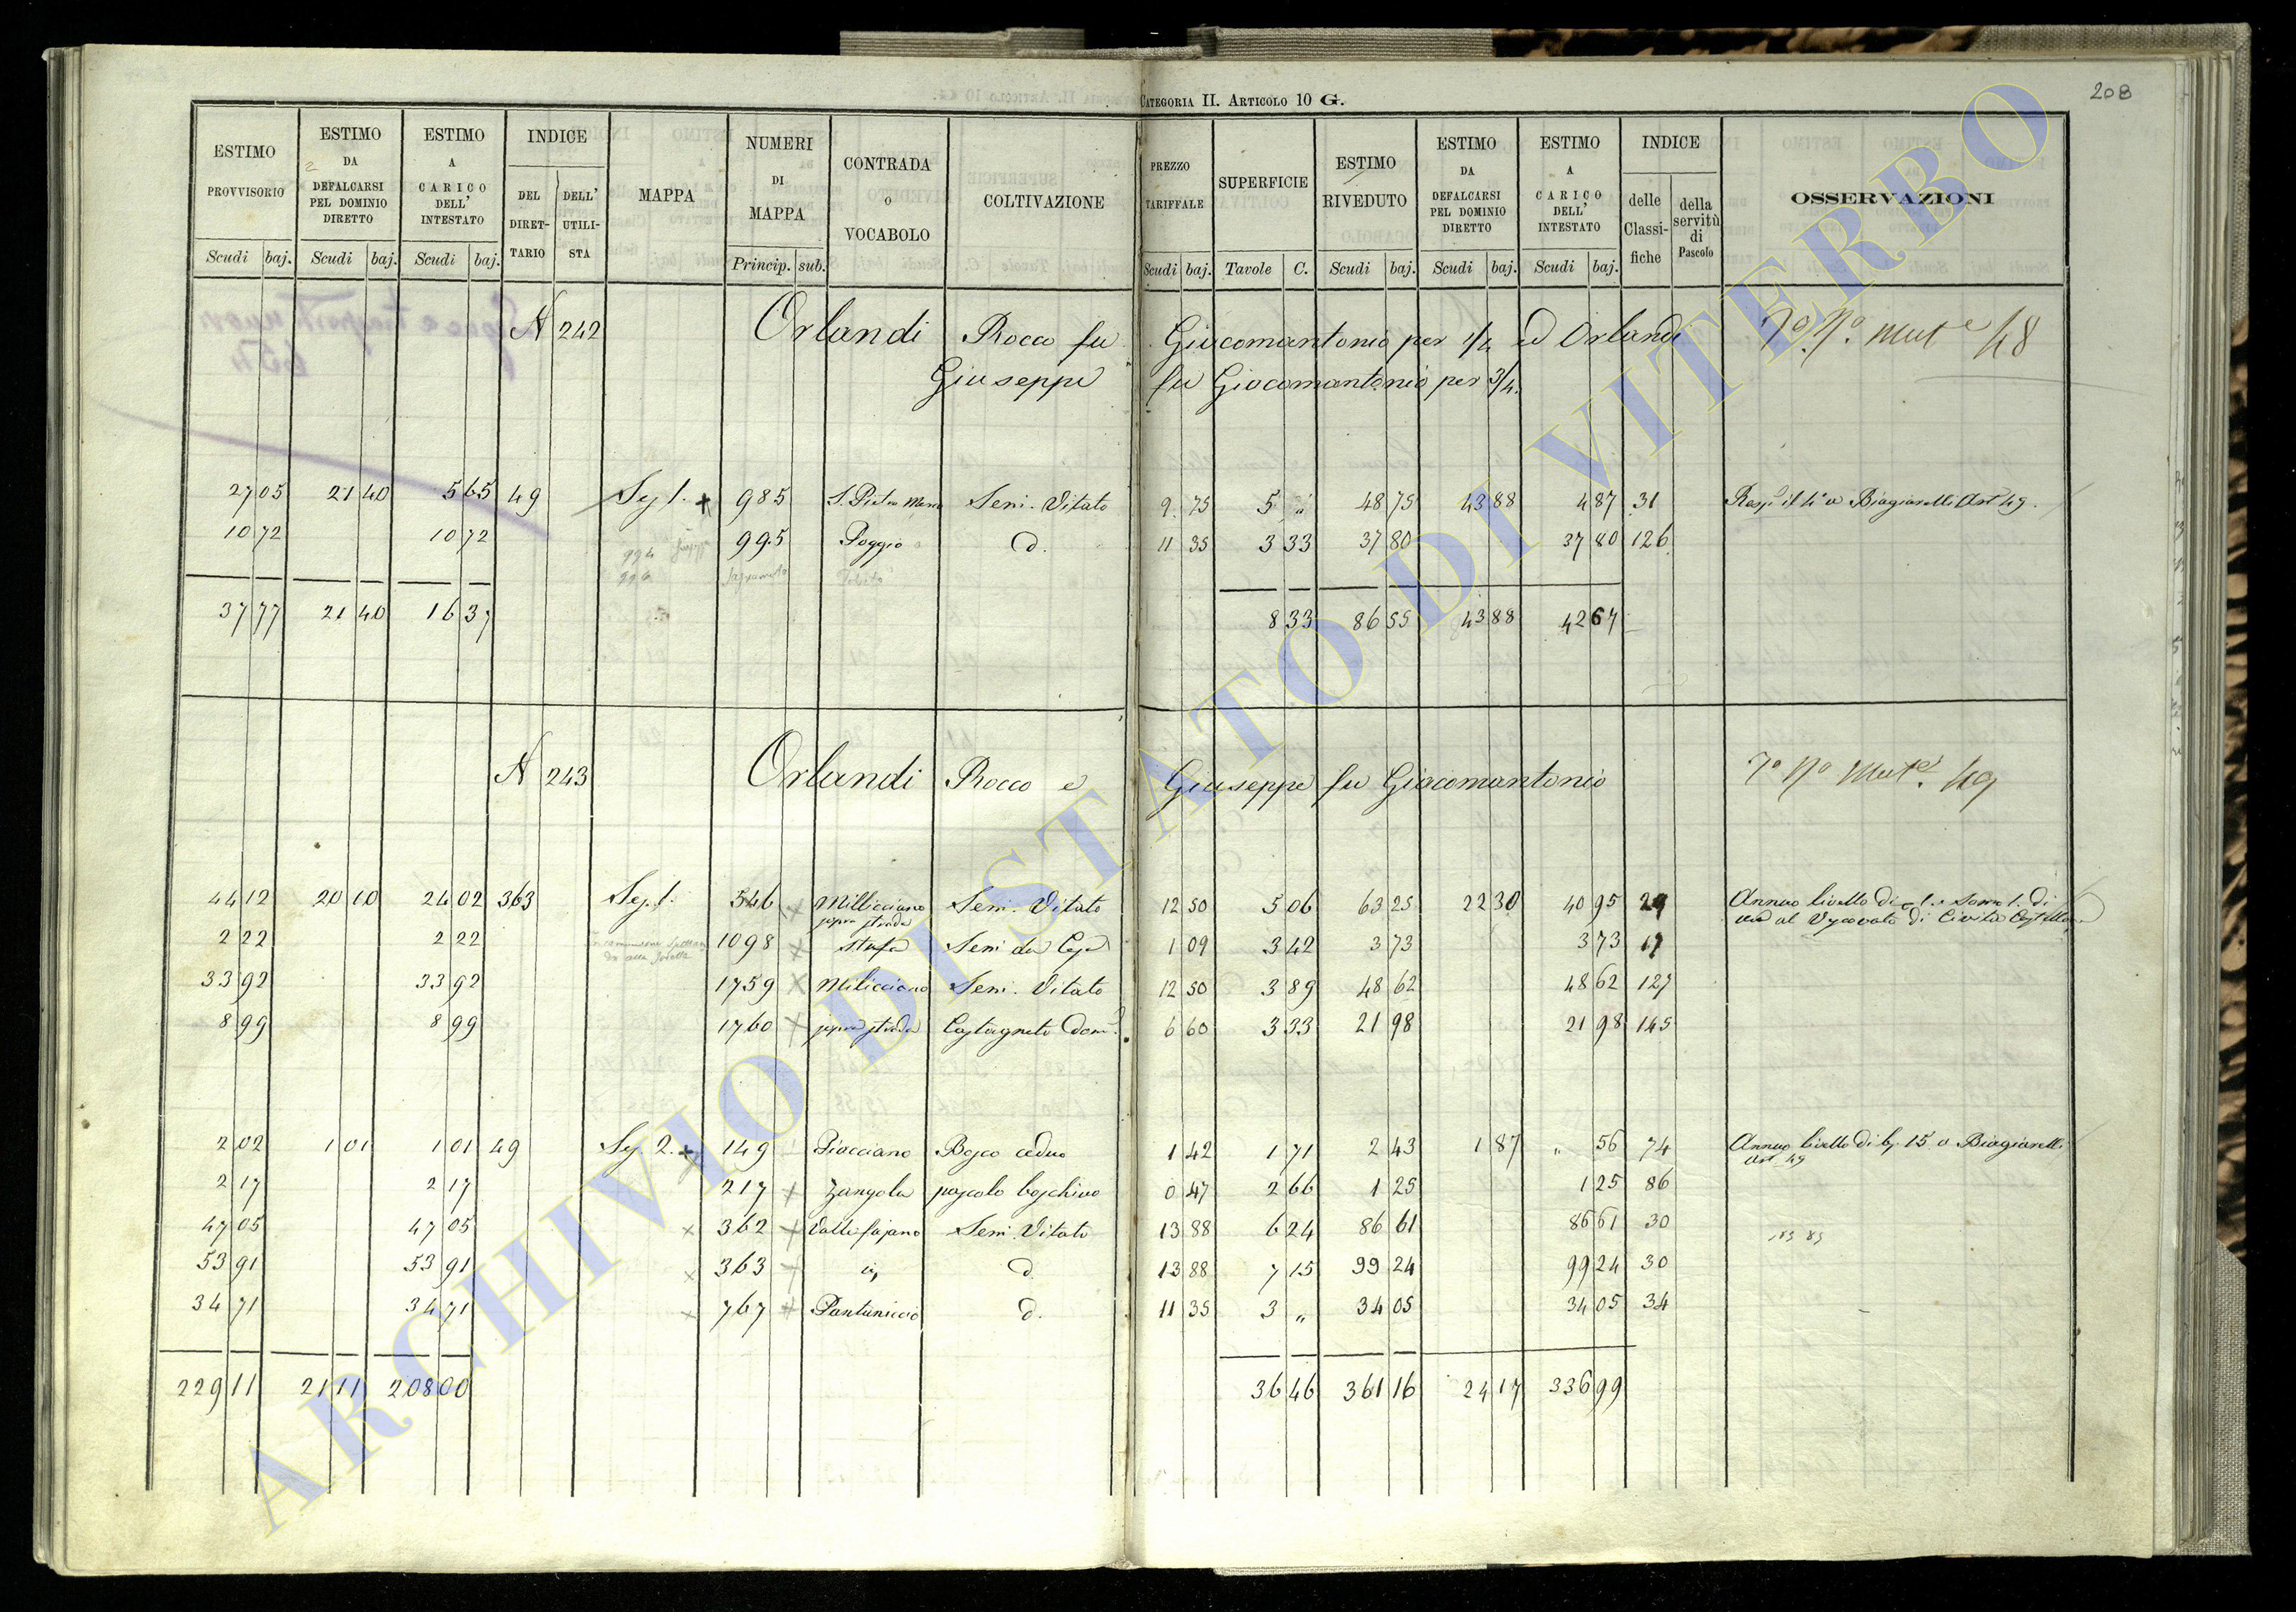 208
CATEGORIA II. ARTICOLO 10 G.
ESTIMO PROVVISORIO | ESTIMO DA DEFALCARSI PEL DOMINIO DIRETTO | ESTIMO A CARICO DELL' INTESTATO | INDICE DEL DIRETTARIO | DELL' UTILISTA | MAPPA | NUMERI DI MAPPA | CONTRADA O VOCABOLO | COLTIVAZIONE | PREZZO TARIFFALE | SUPERFICIE | ESTIMO RIVEDUTO | ESTIMO DA DEFALCARSI PEL DOMINIO DIRETTO | ESTIMO A CARICO DELL' INTESTATO | INDICE delle Classifiche | della servitù di Pascolo | OSSERVAZIONI
Scudi baj. | Scudi baj. | Scudi baj. | Princip. sub. | Scudi baj. | Tavole C. | Scudi baj. | Scudi baj. | Scudi baj.
N 242 Orlandi Rocco fu Giacomantonio per 1/4 ed Orlandi
Giuseppe fu Giacomantonio per 3/4.
7º Nº Mut.e 48
27 05 | 21 40 | 5 65 | 49 | Sez 1. | 985 | Semi. Vitato | 9 75 | 5 " | 48 75 | 43 88 | 4 87 | 31 | a Biagiarelli Art 49.
10 72 | 10 72 | 995 | Poggio | d. | 11 35 | 3 33 | 37 80 | 37 80 | 126
994
37 77 | 21 40 | 16 37 | 8 33 | 86 55 | 43 88 | 42 67
N 243 Orlandi Rocco e Giuseppe fu Giacomantonio
7º Nº Mut.e 49
44 12 | 20 10 | 24 02 | 363 | Sez. 1. | 546 | Millicciano sopra strada | Semi. Vitato | 12 50 | 5 06 | 63 25 | 22 30 | 40 95 | 29 | Annuo livello di
al Vescovato di Civita Castellana
2 22 | 2 22 | 1098 | stufa | Semi da | 1 09 | 3 42 | 3 73 | 3 73 | 19
33 92 | 33 92 | 1759 | Milicciano | Semi. Vitato | 12 50 | 3 89 | 48 62 | 48 62 | 127
8 99 | 8 99 | 1760 | sopra strada | Castagneto Dom. | 6 60 | 3 33 | 21 98 | 21 98 | 145
2 02 | 1 01 | 1 01 | 49 | Sez. 2. | 149 | Piacciano | Bosco ceduo | 1 42 | 1 71 | 2 43 | 1 87 | " 56 | 74 | Annuo livello di bj. 15 a Biagiarelli
Art 49
2 17 | 2 17 | 217 | Zangola | pascolo boschivo | 0 47 | 2 66 | 1 25 | 1 25 | 86
47 05 | 47 05 | 362 | Valle fajano | Semi. Vitato | 13 88 | 6 24 | 86 61 | 86 61 | 30
53 91 | 53 91 | 363 | d. | 13 88 | 7 15 | 99 24 | 99 24 | 30
34 71 | 34 71 | 767 | Pantaniccio | d. | 11 35 | 3 " | 34 05 | 34 05 | 34
229 11 | 21 11 | 208 00 | 36 46 | 361 16 | 24 17 | 336 99
ARCHIVIO DI STATO DI VITERBO